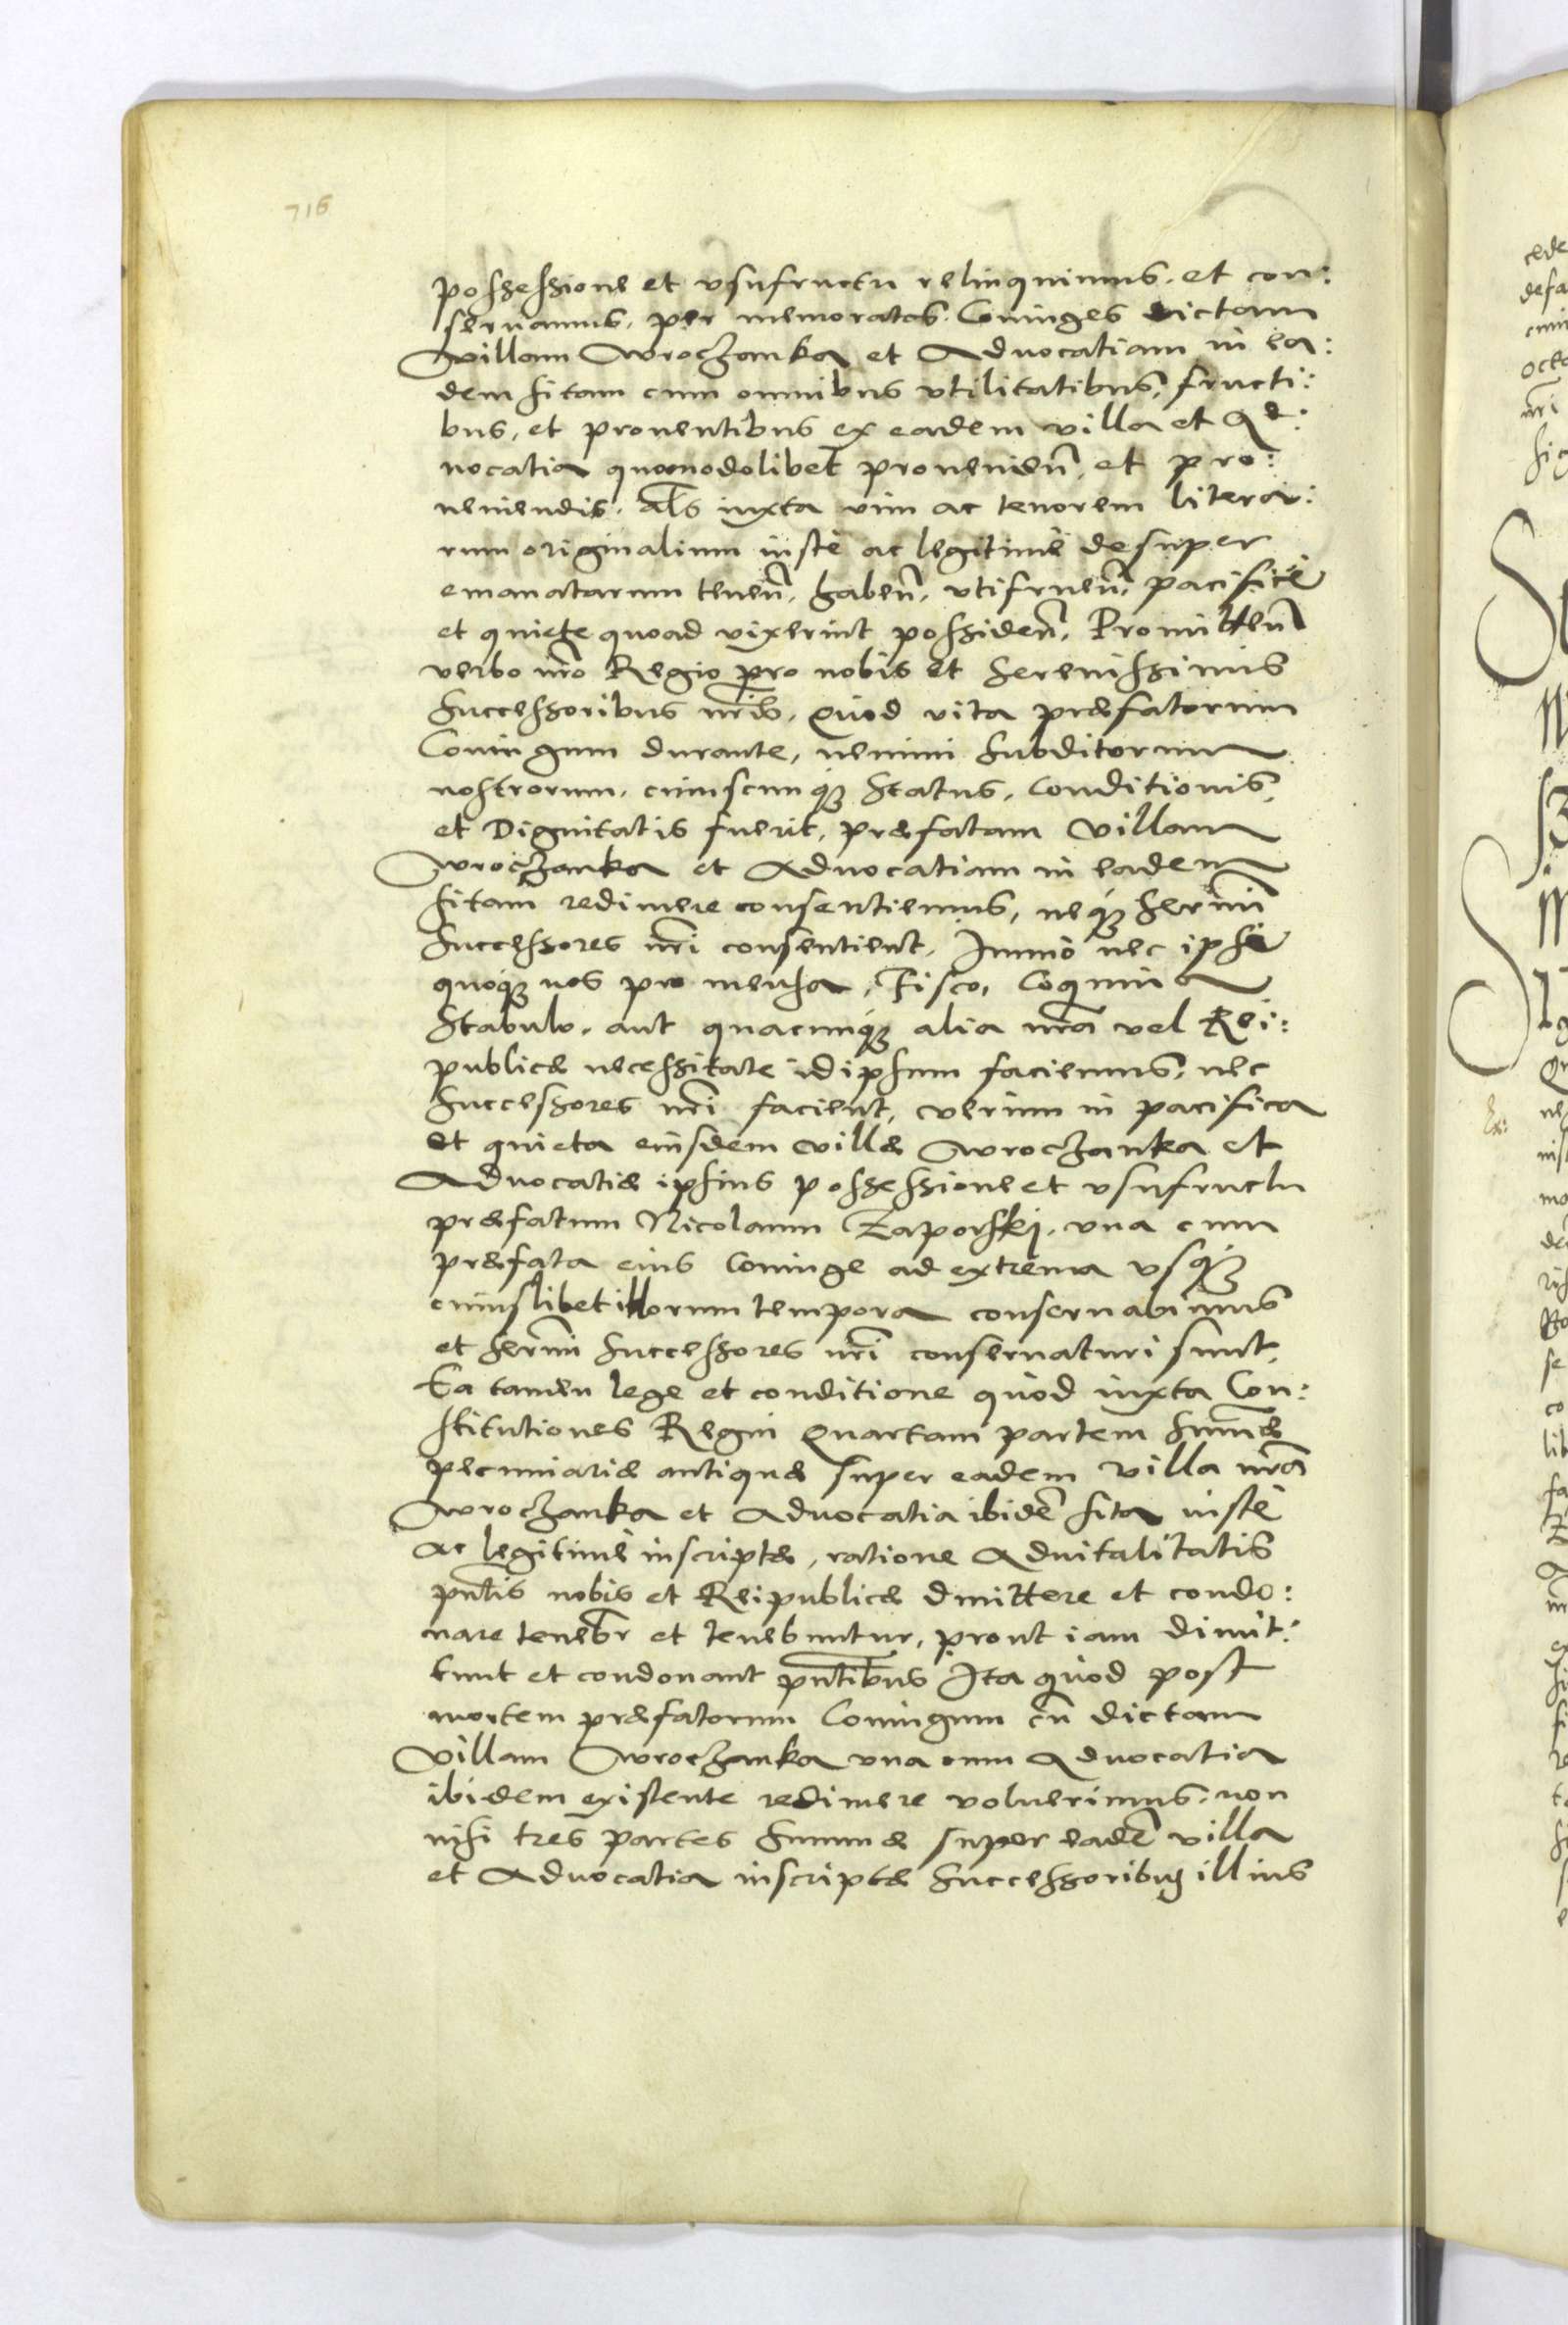 716
possessione et vsufructu relinquimus, et con:
seruamus, per memoratos Coniuges dictam
villam Wroczanka et Aduocatiam in ea:
dem sitam cum omnibus vtilitatibus, fructi:
bus, et prouentibus ex eadem villa et Ad:
uocatia quomodolibet prouenien̄, et pro:
ueniendis, als iuxta vim ac tenorem litera:
rum originalium iustè ac legitimè desuper
emanatarum tenen̄, haben̄, vtifruen̄, pacificè
et quiete quoad vixerint possiden̄, Promitten̄
verbo nr̄o Regio pro nobis et Serenissimis
Successoribus nr̄is, Quod vita præfatorum
Coniugum durante, nemini Subditorum
nostrorum, cuiuscunq3 Status, Conditionis,
et Dignitatis fuerit, præfatam Villam
Wroczanka et Aduocatiam in eadem
sitam redimere consentiemus, neq3 Serm̄i
Successores nr̄i consentient, Immò nec ipsi
quoq3 nos pro mensa, Fisco, Coquina
Stabulo, aut quacunq3 alia nr̄a vel Rei:
publicæ necessitate idipsum faciemus, nec
Successores nr̄i facient, verum in pacifica
et quieta eiusdem villæ Wroczanka et
Aduocatiæ ipsius possessione et vsufructu
præfatum Nicolaum Zaporskj, vna cum
præfata eius Coniuge ad extrema vsq3
cuiuslibet illorum tempora conseruabimus
et Serm̄i Successores nr̄i conseruaturi sunt,
Ea tamen lege et conditione quòd iuxta Con:
stitutiones Regni Quartam partem Sum̄æ
pecuniariæ antiquæ super eadem Villa nr̄a
Wroczanka et Aduocatia ibidē sita iustè
ac legitimè inscriptæ, ratione Aduitalitatis
pn̄tis nobis et Reipublicæ dmittere et condo:
nare tenebr̄ et tenebuntur, prout iam dimit:
tunt et condonant pn̄tibus Ita quòd post
mortem præfatorum Coniugum cū dictam
Villam Wroczanka vna cum Aduocatia
ibidem existente redimere voluerimus, non
nisi tres partes Summæ super eadē villa
et Aduocatia inscriptæ Successoribus illius